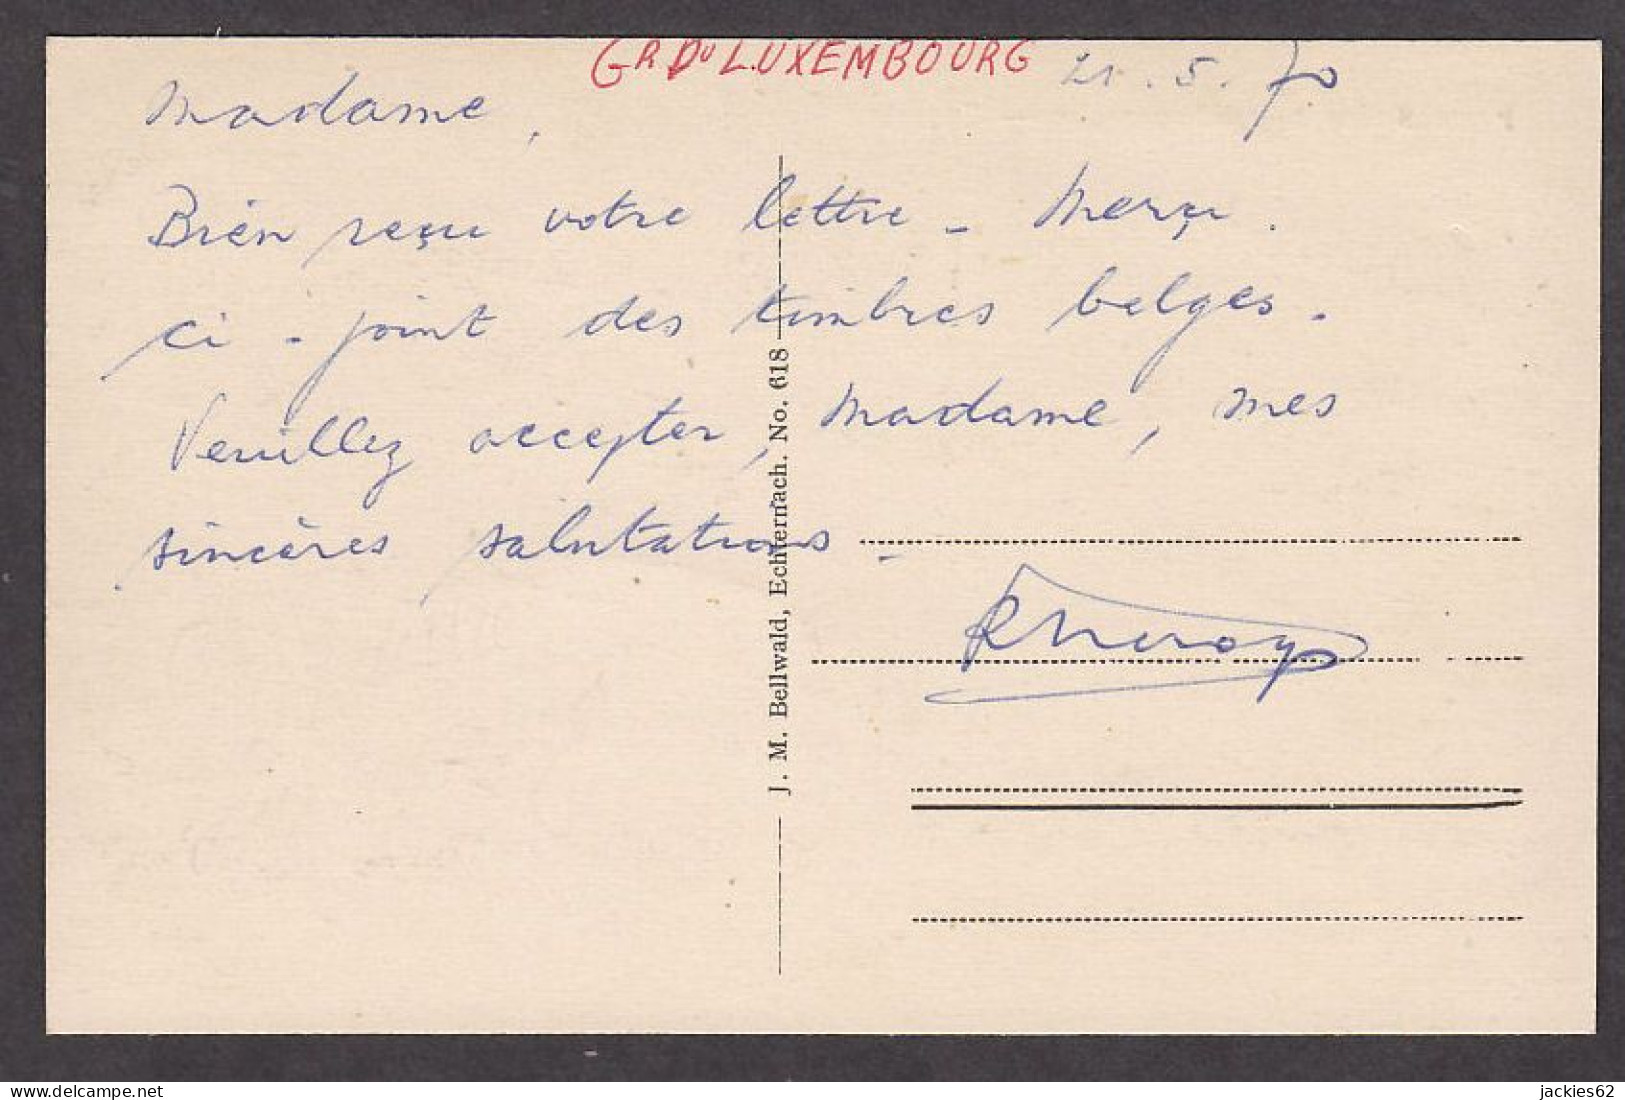 GR DU LUXEMBOURG
21.5.70
Madame,
Bien reçu votre lettre - Merçi.
ci-joint des timbres belges.
Veuillez accepter, Madame, mes
sincères salutations.
J. M. Bellwald, Echternach. No. 618
www.delcampe.net
jackies62